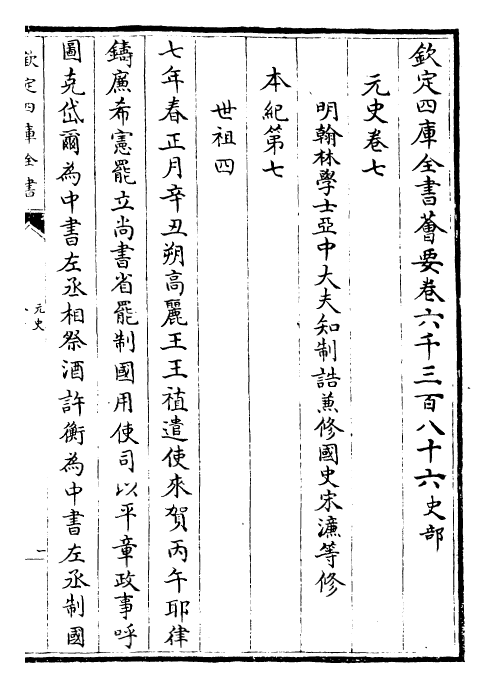 欽定四庫全書薈要卷六千三百八十六史部
元史卷七
明翰林學士亞中大夫知制誥兼修國史宋濂等修
本紀第七
世祖四
七年春正月辛丑朔高麗王王植遣使來賀丙午耶律
鑄廉希憲罷立尚書省罷制國用使司以平章政事呼
圖克岱爾為中書左丞相祭酒許衡為中書左丞制國
欽定四庫全書
元史
一